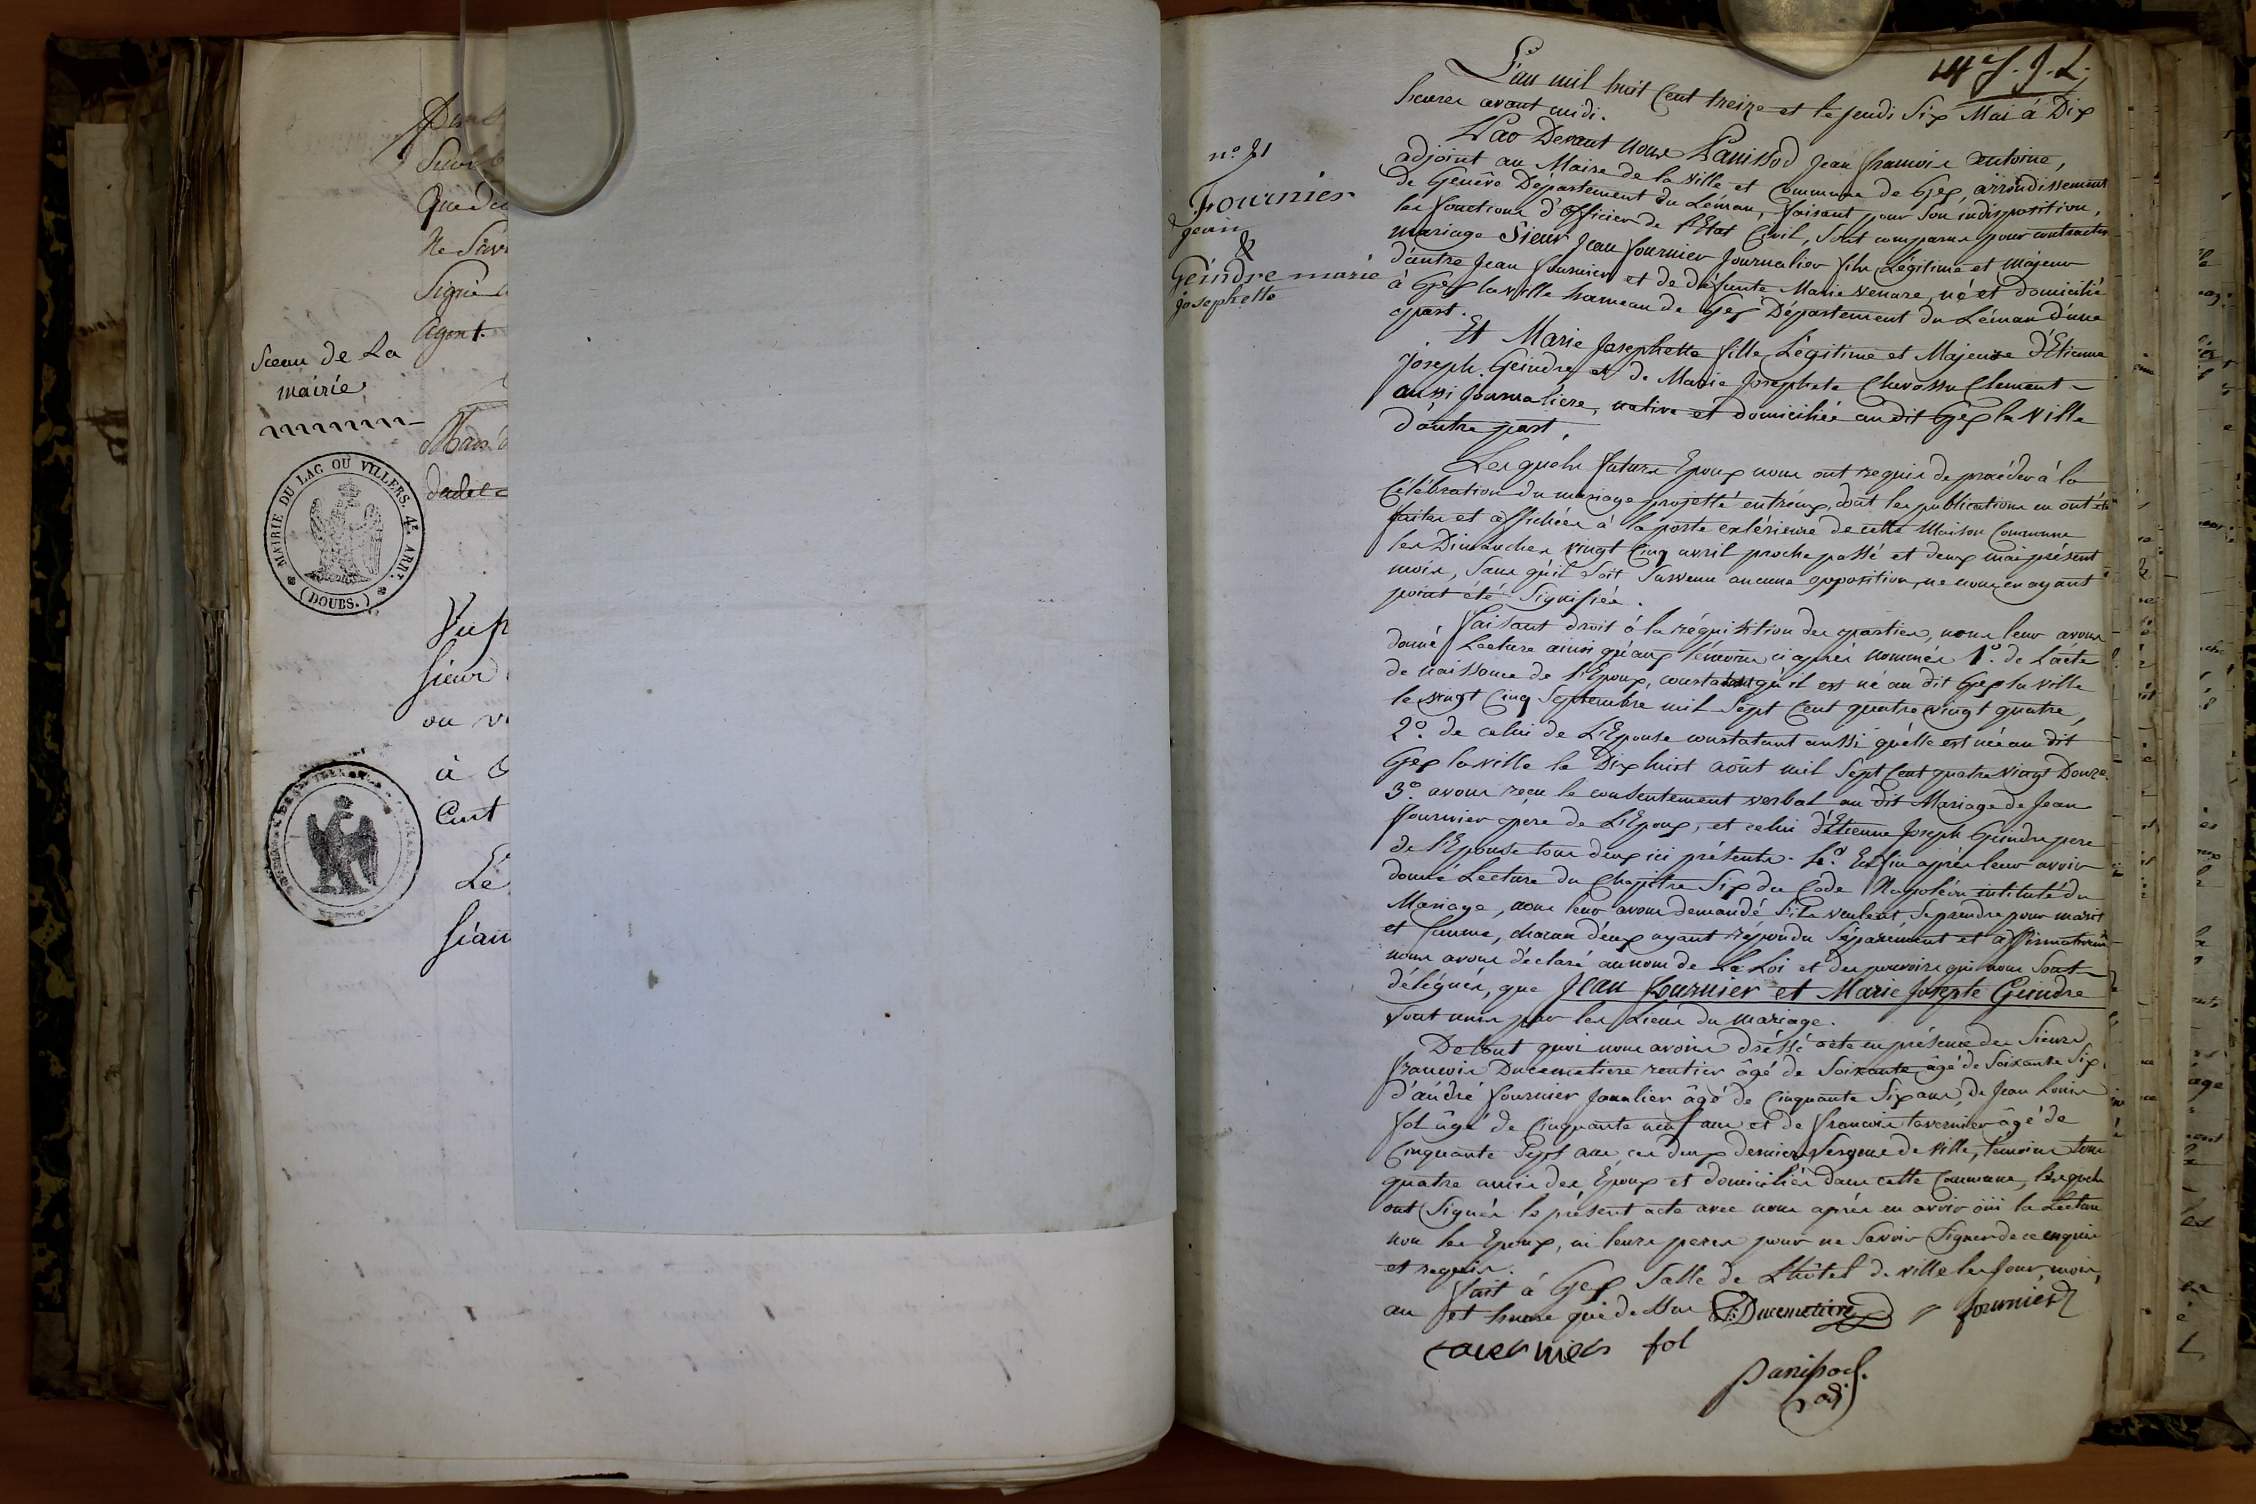 Sceau de La
mairie
MAIRIE DU LAC OU VILLERS. 4.e ARR.t
(DOUBS.)
Signé
agent.
sieur
ou
à
Le
14e f. J. L.
L'an mil huit Cent treize et le jeudi Six Mai à Dix
heures avant midi.
n.o 21
Fournier
jean
&
Geindre marie
josephette
Par Devant nous Panissod Jean francois antoine,
adjoint au Maire de la ville et Commune de Gex, arrondissement
de Genêve Département du Léman, faisant pour son indisposition,
les fonctions d'officier de l'Etat Civil, Sont comparus pour contracter
mariage Sieur Jean fournier Journalier fils Légitime et Majeur
d'autre Jean fournier et de défunte Marie venare, né et domicilié
à Gex la ville hameau de Gex Département du Léman d'une
part.
Et Marie Josephette fille Légitime et Majeure d'Etienne
Joseph Geindre et de Marie Josephete Chevassu Clement
aussi Journaliere, native et domiciliée au dit Gex la Ville
d'autre part.
Lesquels futurs Epoux nous ont requis de procéder à la
Célébration du mariage projetté entr'eux, dont les publications en ont été
faites et affichées à la porte extérieure de cette Maison Commune
les Dimanches vingt Cinq avril proche passé et deux mai présent
mois, Sans qu'il Soit Survenu aucune opposition, ne nous en ayant
point été Signifiée.
faisant droit à la réquisition des parties, nous leur avons
donné Lecture ainsi qu'aux témoins ci après nommés 1.o de L'acte
de naissance de l'Epoux, constatant qu'il est né au dit Gex la ville
le vingt Cinq Septembre mil Sept Cent quatre vingt quatre,
2.o de celui de L'Epouse constatant aussi qu'elle est née au dit
Gex la ville le Dix huit août mil Sept Cent quatre Vingt Douze.
3.o avons reçu le consentement verbal au dit Mariage de Jean
fournier père de L'Epoux, et celui d'Etienne Joseph Geindre pere
de l'Epouse tous deux ici présents. 4.o Enfin après leur avoir
donné Lecture du Chapitre Six du Code Napoléon intitulé du
Mariage, nous leur avons demandé s'ils veulent Se prendre pour mari
et femme, chacun d'eux ayant répondu Séparément et affirmativemt
nous avons déclaré au nom de La Loi et des pouvoirs qui nous Sont
délégués, que Jean fournier et Marie Josephte Geindre
Sont unis par les Liens du mariage.
De tout quoi nous avons dréssé acte en présence des Sieurs
francois Ducemetiere rentier âgé de Soixante âgé de Soixante Six
d'andré fournier âgé de Cinquante Six ans, de Jean Louis
fol âgé de Cinquante neuf ans et de francois tavernier âgé de
Cinquante Sept ans, ces deux derniers Sergens de Ville, temoins tous
quatre amis des Epoux et domiciliés dans cette Commune, lesquels
ont Signés le présent acte avec nous après en avoir ouï la Lecture
non les Epoux, ni leurs peres pour ne Savoir Signer de ce enquis
et requis.
fait à Gex Salle de L'hôtel de ville les jour, mois,
an et heure que dessus F: Ducemetiere fournier
tavernier fol
Panissod.
adj